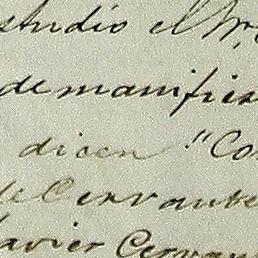 studio el Sr.
de manifies
dicen "Con
de Cervantes
Xavier Cervan